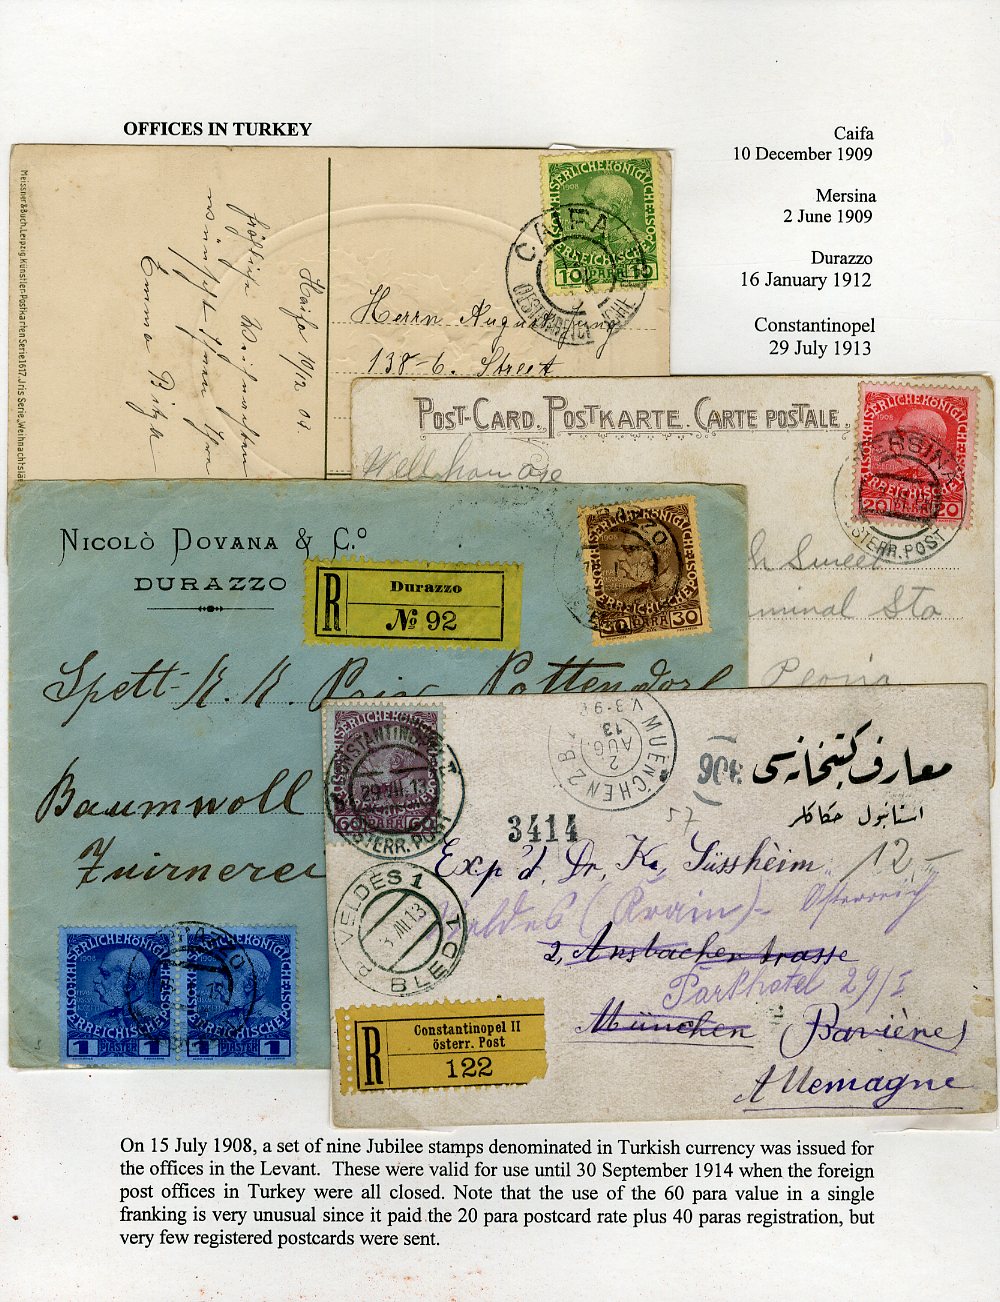 OFFICES IN TURKEY
Caifa
10 December 1909
Mersina
2 June 1909
Durazzo
16 January 1912
Constantinopel
29 July 1913
Meissner & Buch, Leipzig. Künstler-Postkarten Serie 1617. Iris Serie „Weihnachtslä
Haifa 10/12 09
fröhliche Weihnachten
wünscht Ihnen
Emma
Herrn August Jung
138-6. Street
KAISERLICHE KÖNIGLICHE
ÖSTERREICHISCHE POST
1908
10 PARA 10
CAIFA
POST-CARD. POSTKARTE. CARTE POSTALE.
Sweet
Sta
Peoria
20 PARA 20
MERSINA
ÖSTERR. POST
NICOLÒ DOVANA & C.º
DURAZZO
R
Durazzo
№ 92
30 PARA 30
DURAZZO
Spett. K. K. Priv. Pottendorf
Baumwoll
Zwirnerei
1 PIASTER 1
1 PIASTER 1
DURAZZO
60 PARA 60
CONSTANTINOPEL
29 VII. 13
ÖSTERR. POST
MUENCHEN 2 B.Z.
2
AUG
13
V 8-9
906
معارف كتبخانه‌سى
استانبول حكاكلر
3414
57
Exp'd. Dr. K. Süssheim
12.-
Veldes (Krain) - Österreich
2, Ansbacherstrasse
Parkhotel 29/I
München (Bavière)
Allemagne
VELDES 1
3. VIII. 13
BLED 1
R
Constantinopel II
österr. Post
122
On 15 July 1908, a set of nine Jubilee stamps denominated in Turkish currency was issued for
the offices in the Levant. These were valid for use until 30 September 1914 when the foreign
post offices in Turkey were all closed. Note that the use of the 60 para value in a single
franking is very unusual since it paid the 20 para postcard rate plus 40 paras registration, but
very few registered postcards were sent.